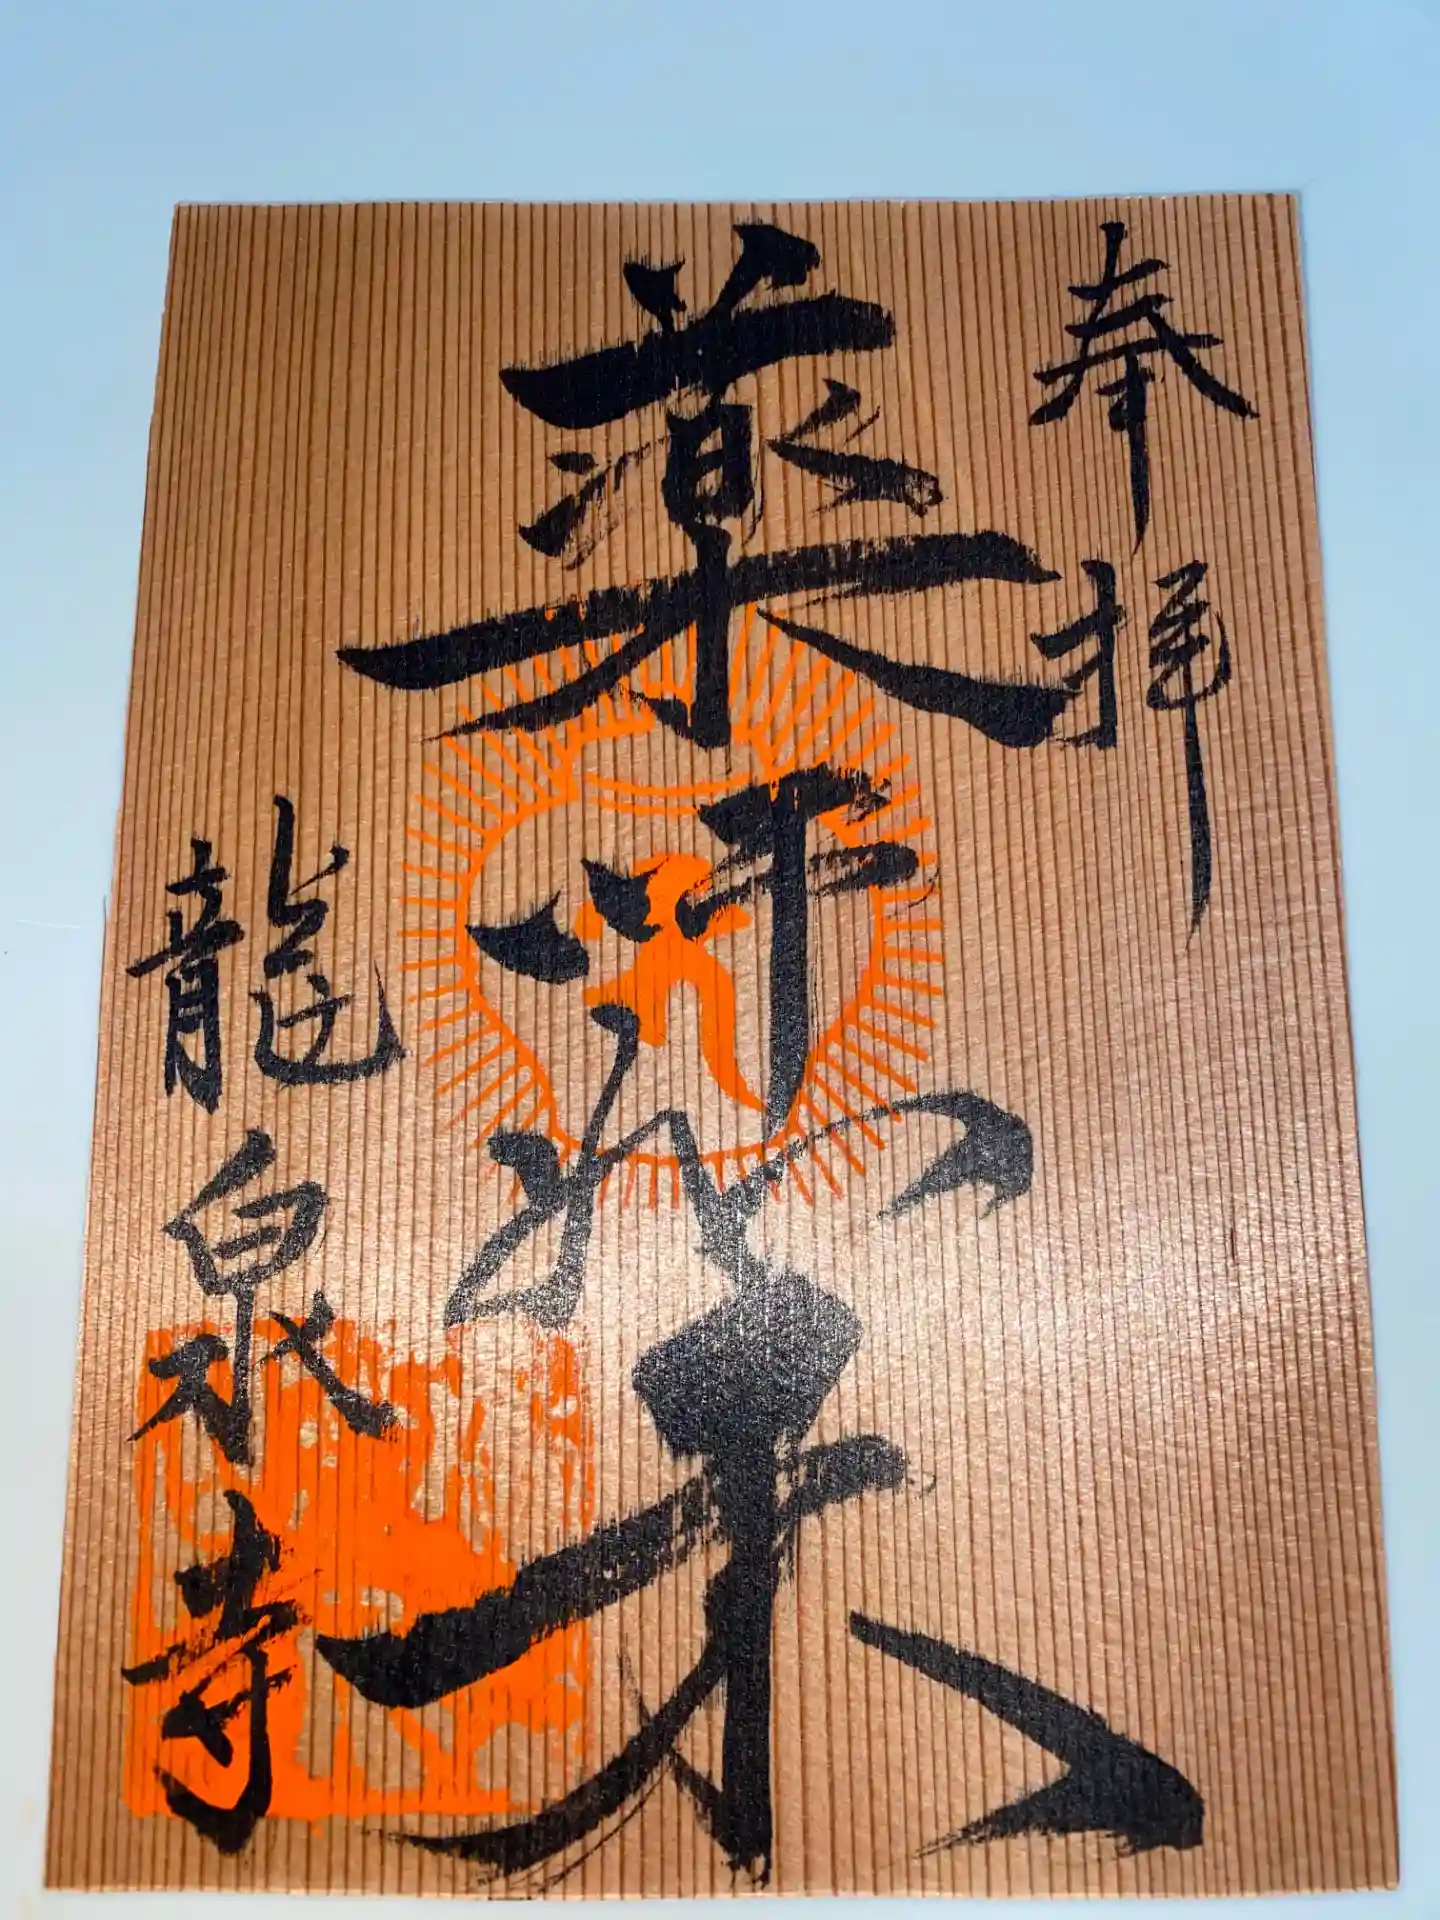 奉拝
薬師如来
龍泉寺